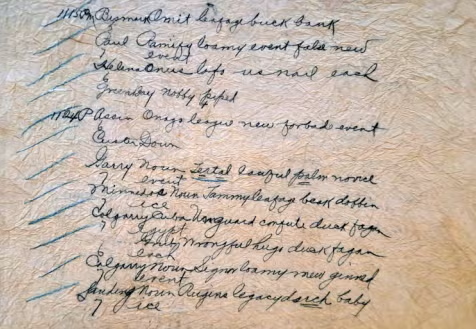 Bismark Omit leafage buck bank
Paul Ramify loamy event false new
event
Helena Onus lofo us nail each
Greenbay nobby piped
Assin Onago league new forbade event
Custer Down
Garry Noun Tertal lawful palm novice
event
Minnedos Noun Jammy leafage beak dobbin
ice
Calgarry Cuba Unguard confute duck fagan
Egypt
Wrongful hugo duck fagan
each
Calgarry Noun Signor loamy new ginned
event
Landing Noun Rugins legacy duck baby
ice